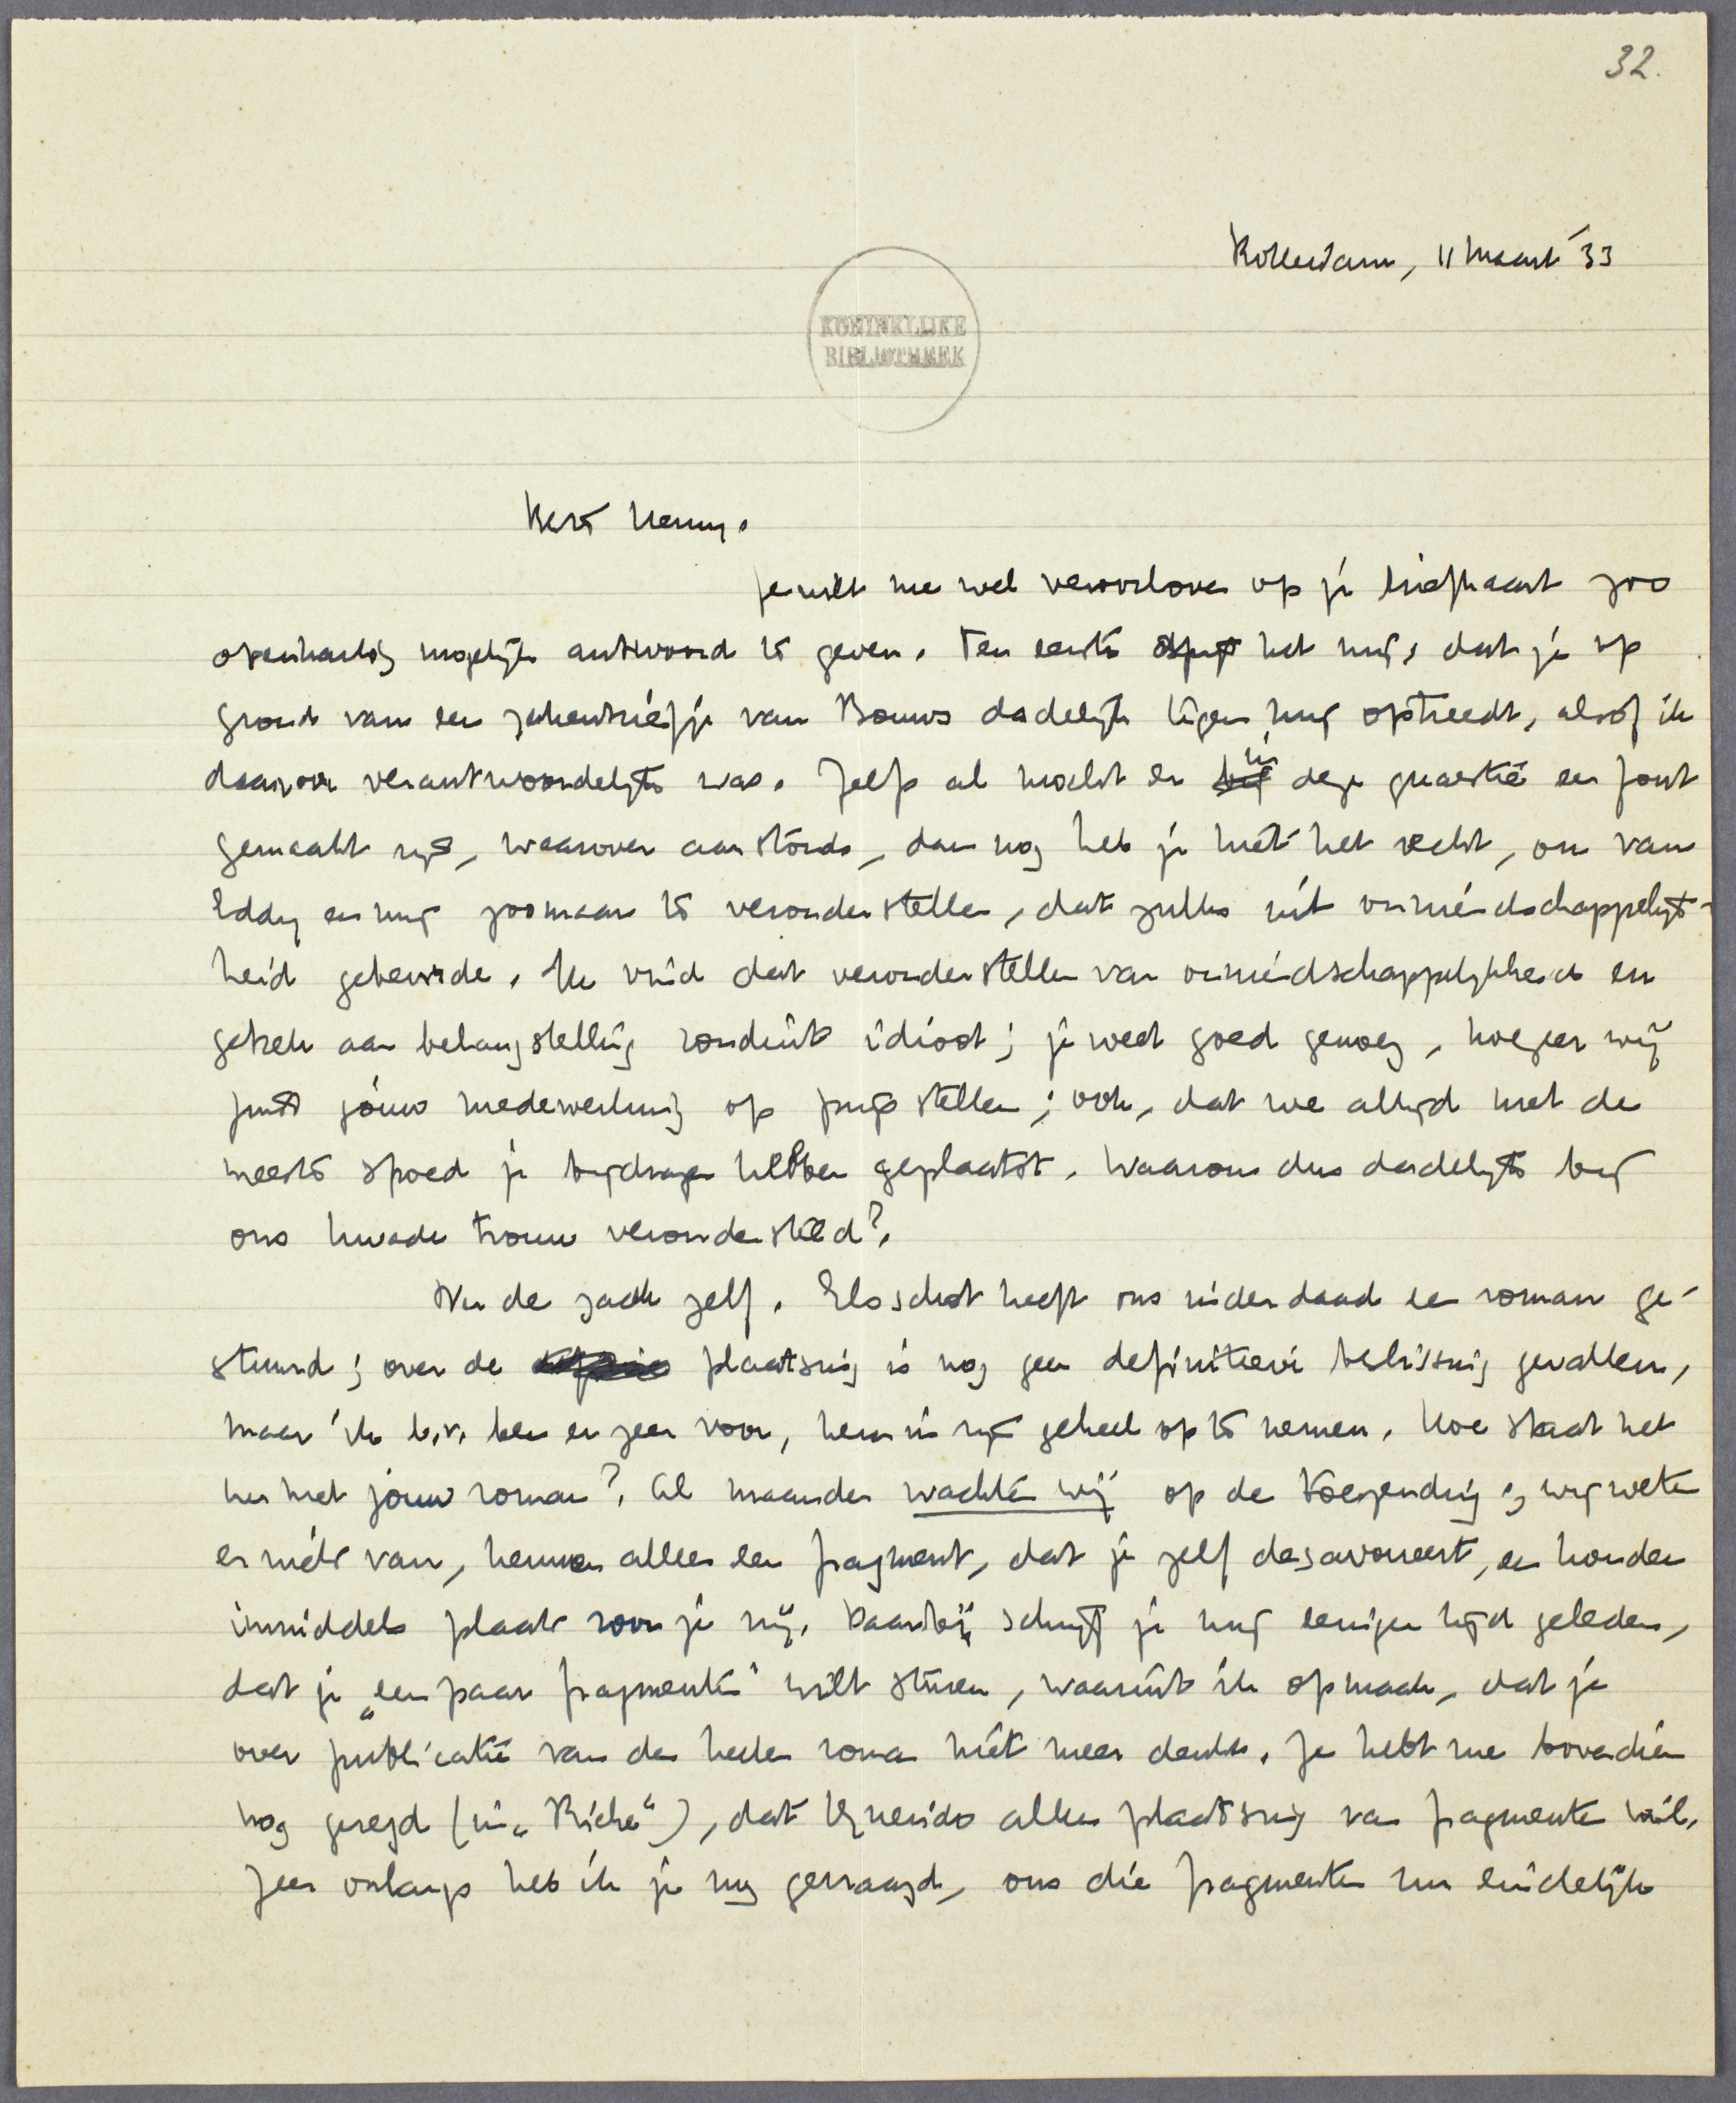 32.
Rotterdam, 11 Maart '33
KONINKLIJKE
BIBLIOTHEEK
Beste Henny.
Je wilt me wel veroorloven op je briefkaart zoo
openhartig mogelijk antwoord te geven. Ten eerste spijt het mij, dat je op
grond van een zakenbriefje van Bouws dadelijk tegen mij optreedt, alsof ik
daarvoor verantwoordelijk was. Zelfs al mocht er bij in deze quaestie een fout
gemaakt zijn, waarover aanstonds, dan nog heb je niet het recht, om van
Eddy en mij zoomaar te veronderstellen, dat zulks uit onvriendschappelijk-
heid gebeurde. Ik vind dat veronderstellen van onvriendschappelijkheid en
gebrek aan belangstelling ronduit idioot; je weet goed genoeg, hoezeer wij
juist jóuw medewerking op prijs stellen; ook, dat we altijd met de
meeste spoed je bijdragen hebben geplaatst. Waarom dus dadelijk bij
ons kwade trouw verondersteld?
Nu de zaak zelf. Elsschot heeft ons inderdaad een roman ge-
stuurd; over de plaatsing is nog geen definitieve beslissing gevallen,
maar ik b.v. ben er zeer voor, hem in zijn geheel op te nemen. Hoe staat het
nu met jouw roman? Al maanden wachten wij op de toezending; wij weten
er niets van, kennen alleen een fragment, dat je zelf desavoueert, en houden
inmiddels plaats voor je vrij. Daarbij schrijf je mij eenigen tijd geleden,
dat je „een paar fragmenten" wilt sturen, waaruit ik opmaak, dat je
over publicatie van den heelen roman niet meer denkt. Je hebt me bovendien
nog gezegd (in „Riche"), dat Querido alleen plaatsing van fragmenten wil.
Zeer onlangs heb ik je nog gevraagd, ons die fragmenten nu eindelijk